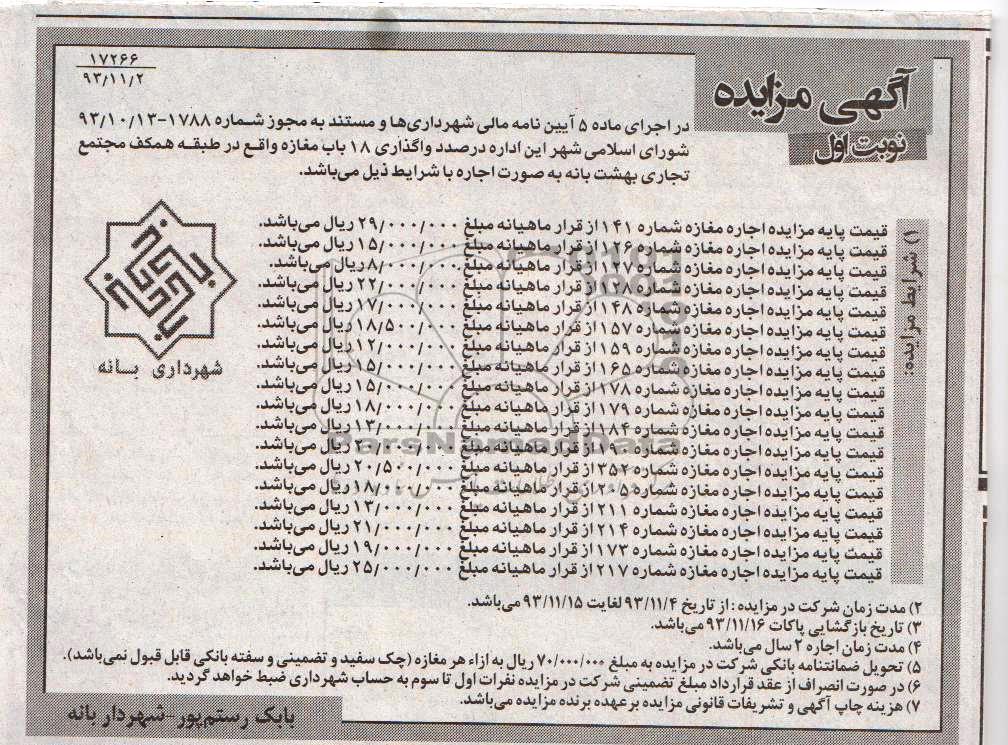 ۱۷۲۶۶
۹۳/۱۱/۲
آگهی مزایده
نوبت اول
در اجرای ماده ۵ آیین نامه مالی شهرداری‌ها و مستند به مجوز شماره ۱۷۸۸-۹۳/۱۰/۱۳
شورای اسلامی شهر این اداره درصدد واگذاری ۱۸ باب مغازه واقع در طبقه همکف مجتمع
تجاری بهشت بانه به صورت اجاره با شرایط ذیل می‌باشد.
شهرداری بانه
۱) شرایط مزایده:
قیمت پایه مزایده اجاره مغازه شماره ۱۴۱ از قرار ماهیانه مبلغ ۲۹/۰۰۰/۰۰۰ ریال می‌باشد.
قیمت پایه مزایده اجاره مغازه شماره ۱۲۶ از قرار ماهیانه مبلغ ۱۵/۰۰۰/۰۰۰ ریال می‌باشد.
قیمت پایه مزایده اجاره مغازه شماره ۱۲۷ از قرار ماهیانه مبلغ ۸/۰۰۰/۰۰۰ ریال می‌باشد.
قیمت پایه مزایده اجاره مغازه شماره ۱۲۸ از قرار ماهیانه مبلغ ۲۲/۰۰۰/۰۰۰ ریال می‌باشد.
قیمت پایه مزایده اجاره مغازه شماره ۱۴۸ از قرار ماهیانه مبلغ ۱۷/۰۰۰/۰۰۰ ریال می‌باشد.
قیمت پایه مزایده اجاره مغازه شماره ۱۵۷ از قرار ماهیانه مبلغ ۱۸/۵۰۰/۰۰۰ ریال می‌باشد.
قیمت پایه مزایده اجاره مغازه شماره ۱۵۹ از قرار ماهیانه مبلغ ۱۲/۰۰۰/۰۰۰ ریال می‌باشد.
قیمت پایه مزایده اجاره مغازه شماره ۱۶۵ از قرار ماهیانه مبلغ ۱۵/۰۰۰/۰۰۰ ریال می‌باشد.
قیمت پایه مزایده اجاره مغازه شماره ۱۷۸ از قرار ماهیانه مبلغ ۱۵/۰۰۰/۰۰۰ ریال می‌باشد.
قیمت پایه مزایده اجاره مغازه شماره ۱۷۹ از قرار ماهیانه مبلغ ۱۸/۰۰۰/۰۰۰ ریال می‌باشد.
قیمت پایه مزایده اجاره مغازه شماره ۱۸۴ از قرار ماهیانه مبلغ ۱۳/۰۰۰/۰۰۰ ریال می‌باشد.
قیمت پایه مزایده اجاره مغازه شماره از قرار ماهیانه مبلغ ریال می‌باشد.
قیمت پایه مزایده اجاره مغازه شماره ۳۵۲ از قرار ماهیانه مبلغ ۲۰/۵۰۰/۰۰۰ ریال می‌باشد.
قیمت پایه مزایده اجاره مغازه شماره ۲۰۵ از قرار ماهیانه مبلغ ۱۸/۰۰۰/۰۰۰ ریال می‌باشد.
قیمت پایه مزایده اجاره مغازه شماره ۲۱۱ از قرار ماهیانه مبلغ ۱۳/۰۰۰/۰۰۰ ریال می‌باشد.
قیمت پایه مزایده اجاره مغازه شماره ۲۱۴ از قرار ماهیانه مبلغ ۲۱/۰۰۰/۰۰۰ ریال می‌باشد.
قیمت پایه مزایده اجاره مغازه شماره ۱۷۳ از قرار ماهیانه مبلغ ۱۹/۰۰۰/۰۰۰ ریال می‌باشد.
قیمت پایه مزایده اجاره مغازه شماره ۲۱۷ از قرار ماهیانه مبلغ ۲۵/۰۰۰/۰۰۰ ریال می‌باشد.
ParsNamadData
۲) مدت زمان شرکت در مزایده: از تاریخ ۹۳/۱۱/۴ لغایت ۹۳/۱۱/۱۵ می‌باشد.
۳) تاریخ بازگشایی پاکات ۹۳/۱۱/۱۶ می‌باشد.
۴) مدت زمان اجاره ۲ سال می‌باشد.
۵) تحویل ضمانتنامه بانکی شرکت در مزایده به مبلغ ۷۰/۰۰۰/۰۰۰ ریال به ازاء هر مغازه (چک سفید و تضمینی و سفته بانکی قابل قبول نمی‌باشد).
۶) در صورت انصراف از عقد قرارداد مبلغ تضمینی شرکت در مزایده نفرات اول تا سوم به حساب شهرداری ضبط خواهد گردید.
۷) هزینه چاپ آگهی و تشریفات قانونی مزایده بر عهده برنده مزایده می‌باشد.
بابک رستم‌پور-شهردار بانه